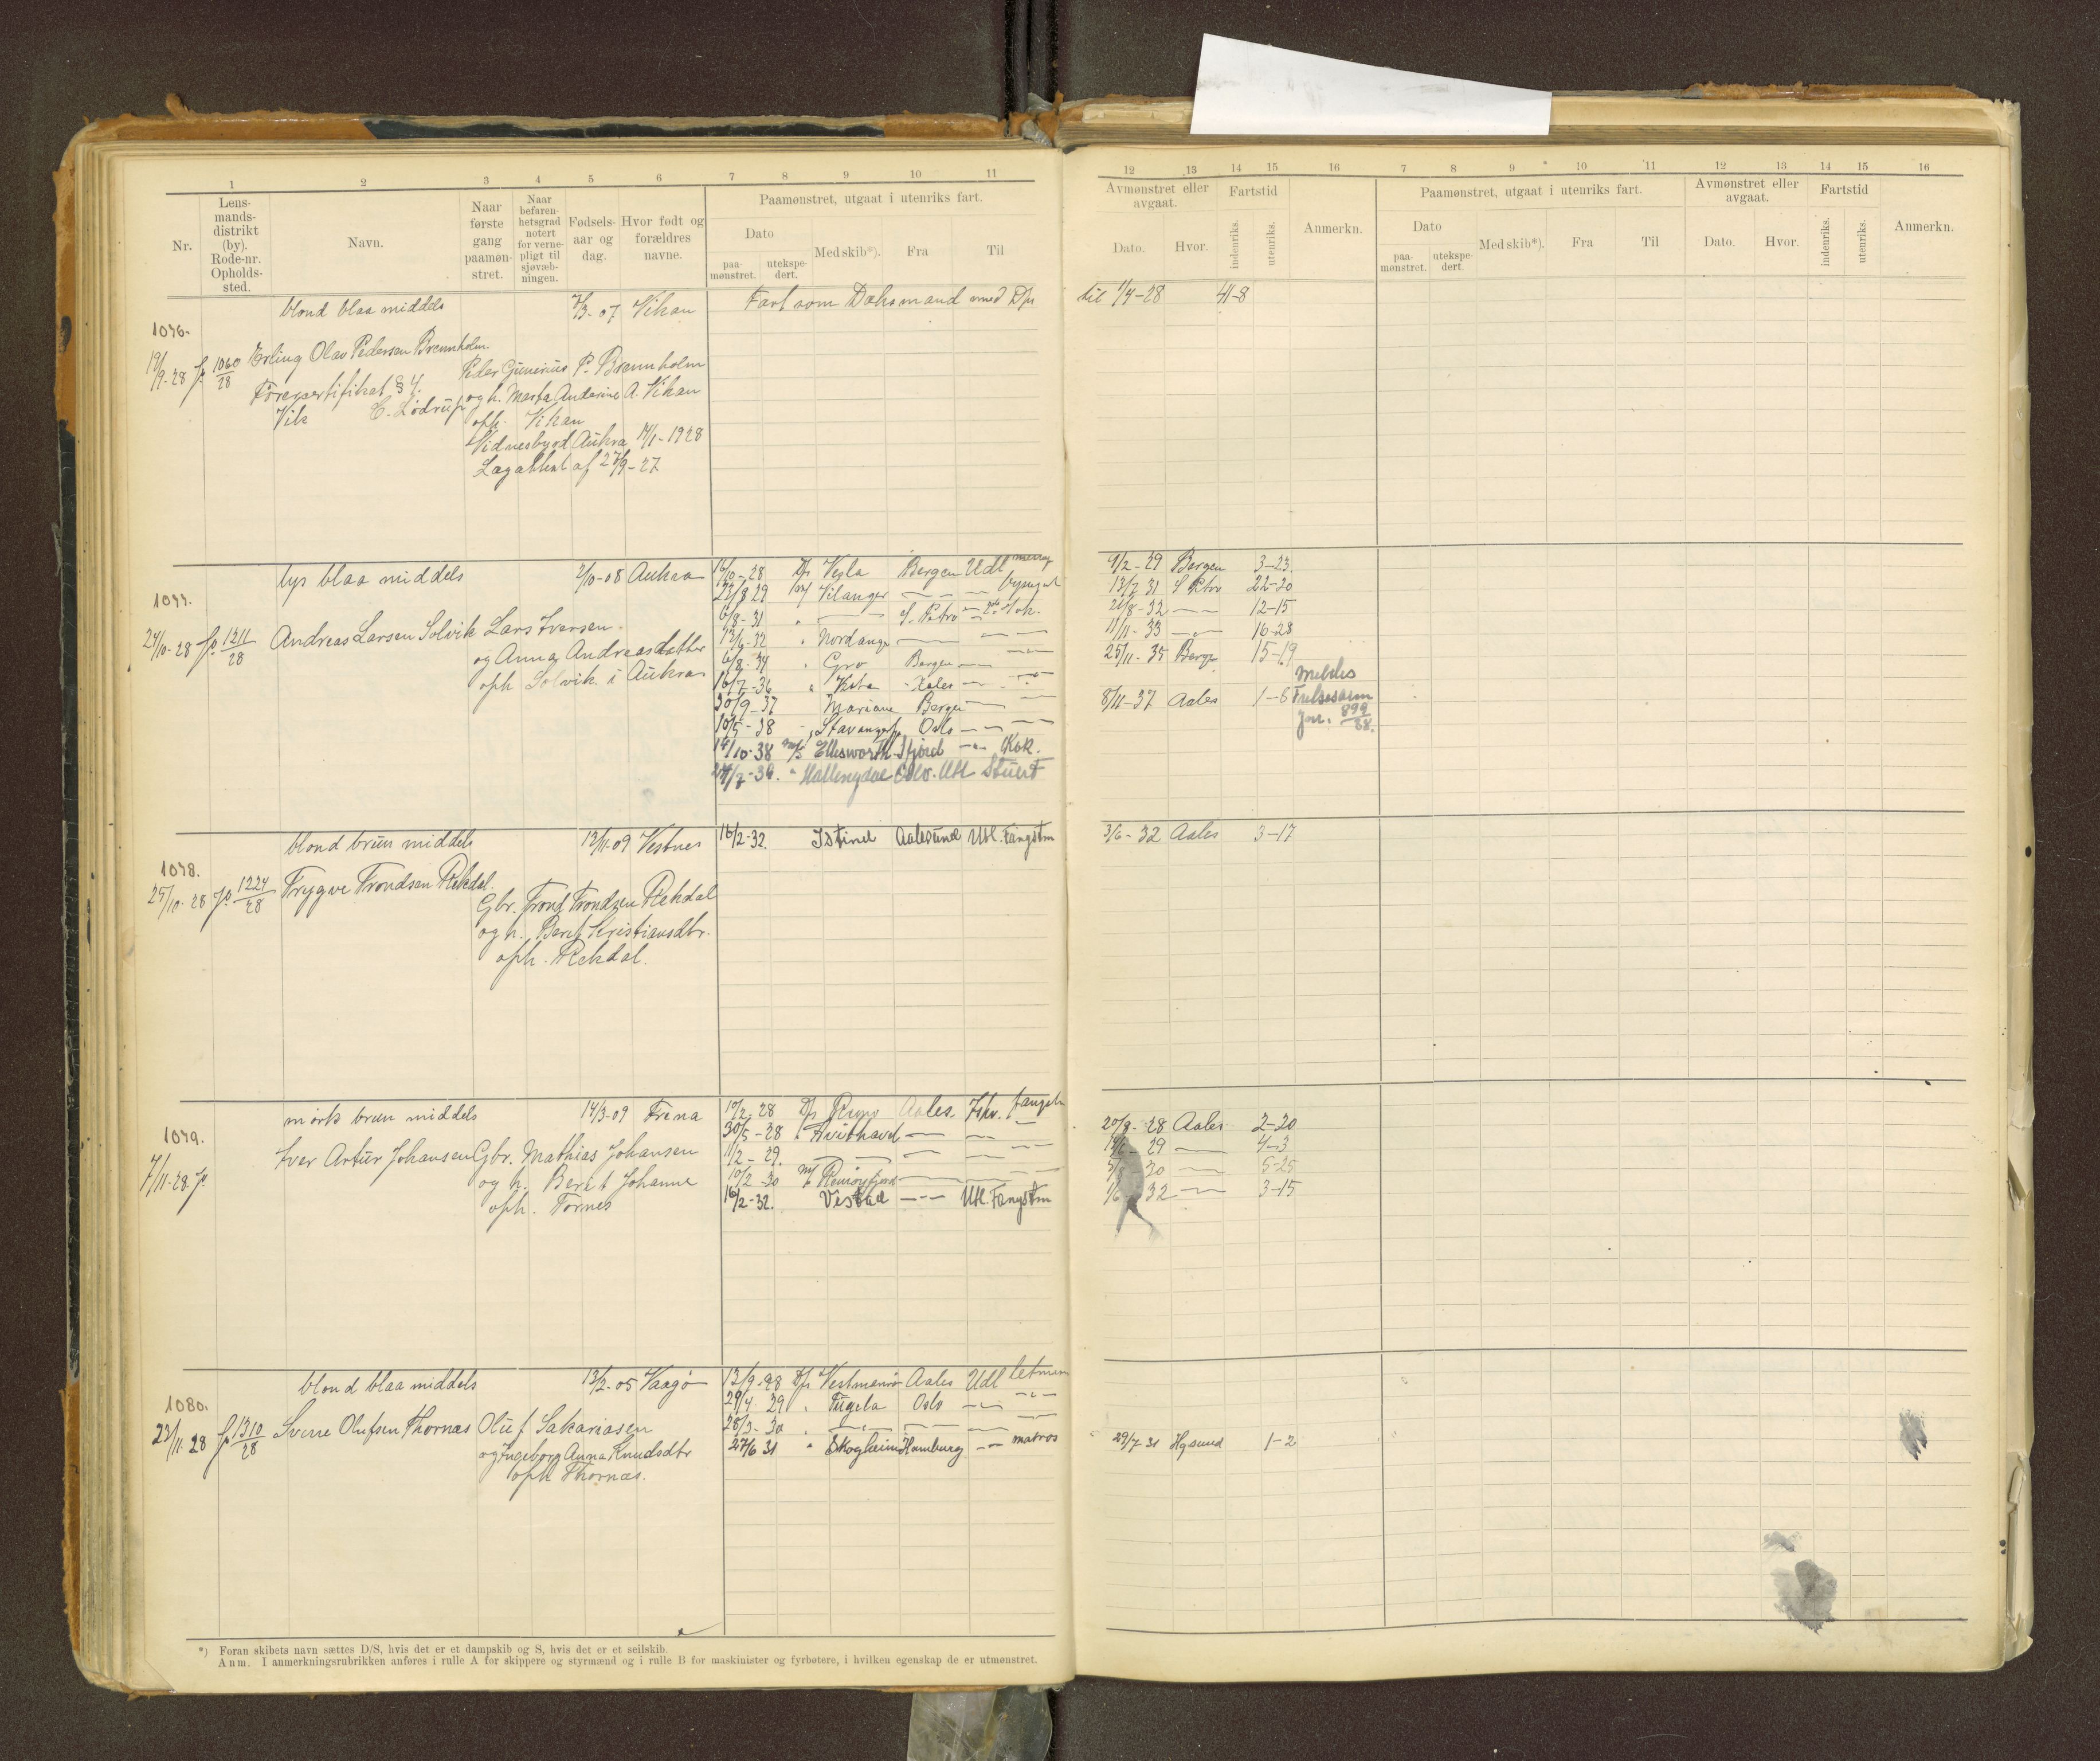 1 2 3 4 5 6 7 8 9 10 11
Nr. Lensmandsdistrikt (by). Rode-nr. Opholdssted. Navn. Naar første gang paamønstret. Naar befarenhetsgrad notert for vernepligt til sjøvæbningen. Fødselsaar og dag. Hvor født og forældres navne. Paamønstret, utgaat i utenriks fart.
Dato
paamønstret. utekspedert. Med skib*). Fra Til
12 13 14 15 16 7 8 9 10 11 12 13 14 15 16
Avmønstret eller avgaat. Fartstid Anmerkn. Paamønstret, utgaat i utenriks fart. Avmønstret eller avgaat. Fartstid Anmerkn.
Dato. Hvor. indenriks. utenriks. Dato Med skib*). Fra Til Dato. Hvor. indenriks. utenriks.
paamønstret. utekspedert.
blond blaa middels 7/3-07 Vikan Fart som Dæksmand med D/s til 1/4-28 41-8
1076.
19/9-28 fo 1060/28 Erling Olav Pedersen Brennholm
Peder Gunerius P. Brennholm
Førercertifikat § 4. og h. Marta Anderine A. Vikan
Vik C. Lødrup oph. Vikan
Vidnesbyrd Aukra 14/1-1928
Lægattest af 27/9-27
lys blaa middels 2/10-08 Aukra 16/10-28 D/s Vesla Bergen Udl 9/2-29 Bergen 3-23
1077. 22/8 29 Vilanger — — — 13/7 31 S Petro 22-20
24/10-28 fo 1211/28 Andreas Larsen Solvik Lars Iversen 6/8-31 " — S. Petro — Kok. 21/8-32 — 12-15
12/6-32 " Nordanger — — — 11/11-33 — 16-28
og Anna Andreasdatter 6/8-34 " Gro Bergen — — 25/11-35 Berge 15-19
oph Solvik i Aukra 16/7-36 " Aales — — 8/11-37 Aales 1-6
Meldes
30/9-37 Mariane Bergen — —
Jnr. 899/38.
10/5-38 Oslo — —
14/10-38 m/s Ellsworth — Kok.
24/2-39. " Hallingdal Oslo. Utl. Stuert
blond brun middels 12/11-09 Vestnes 16/2-32. Istind Aalesund Utl. Fangstm 3/6-32 Aales 3-17
1078.
25/10-28 fo 1224/28 Trygve Trondsen Rekdal.
Gbr. Trond Trondsen Rekdal
og h. Berit Kristiansdtr.
oph. Rekdal.
mørk brun middels 14/3-09 Fræna 10/2-28 D/s Aales. Ishv. fangstm 20/8-28 Aales 2-20
1079. 30/5-28 " Kvithavd — — — 29 — 4-3
7/11-28 fo Iver Artur Johansen Gbr. Mathias Johansen 11/2-29. — — — — 30 — 5-25
og h. Berit Johanne 10/2-30 — — — 32 — 3-15
oph. Tornes 16/2-32. Vestad — Utl. Fangstm
blond blaa middels 13/2-05 Vaagø 13/9-28 D/s Vestmanrø Aales Udl letmm
1080. 29/4 29 " Tugela Oslo — —
23/11-28 fo 1310/28 Sverre Olufsen Thornæs Oluf Sakariasen 28/3-30 " — — — —
og Ingeborg Anna Knudsdtr 27/6 31 " Skogheim Hamburg — matros 29/7-31 Hgsund 1-2
oph Thornæs.
*) Foran skibets navn sættes D/S, hvis det er et dampskib og S, hvis det er et seilskib.
Anm. I anmerkningsrubrikken anføres i rulle A for skippere og styrmænd og i rulle B for maskinister og fyrbøtere, i hvilken egenskap de er utmønstret.